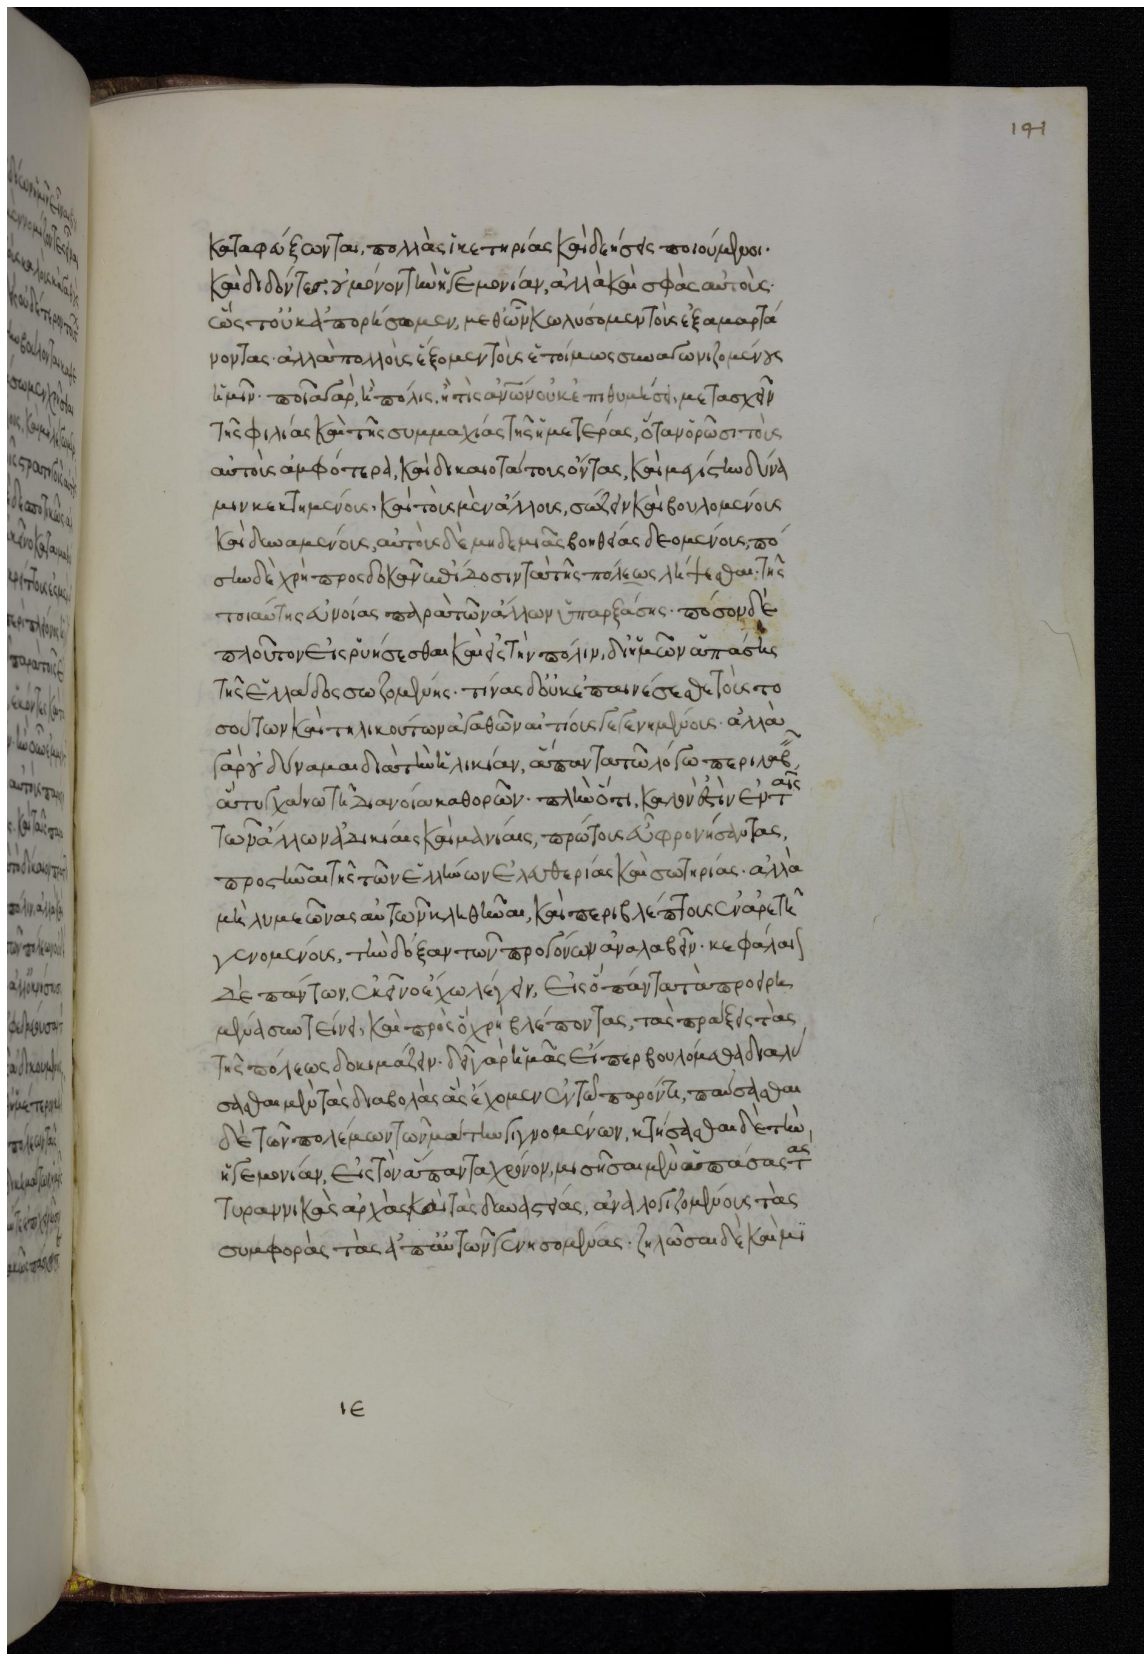 191
καταφεύξωνται, πολλὰς ἱκετηρίας καὶ δεήσεις ποιούμενοι·
καὶ διδόντες, οὐ μόνον τὴν ἡγεμονίαν, ἀλλὰ καὶ σφᾶς αὐτούς·
ὥστ' οὐκ ἀπορήσομεν, μεθ' ὧν κωλύσομεν τοὺς ἐξαμαρτά
νοντας· ἀλλὰ πολλοὺς ἕξομεν τοὺς ἑτοίμως συναγωνιζομένους
ἡμῖν· ποία γὰρ, ἢ πόλις, ἢ τίς ἀνθρώπων οὐκ ἐπιθυμήσει, μετασχεῖν
τῆς φιλίας καὶ τῆς συμμαχίας τῆς ἡμετέρας, ὅταν ὁρῶσι τοὺς
αὐτοὺς ἀμφότερα, καὶ δικαιοτάτους ὄντας, καὶ μεγίστην δύνα
μιν κεκτημένους· καὶ τοὺς μὲν ἄλλους, σώζειν καὶ βουλομένους
καὶ δυναμένους, αὐτοὺς δὲ μηδεμιᾶς βοηθείας δεομένους, πό
σην δὲ χρὴ προσδοκᾶν ἐπίδοσιν τὰ τῆς πόλεως λήψεσθαι· τῆς
τοιαύτης εὐνοίας παρὰ τῶν ἄλλων ὑπαρξάσης· πόσον δὲ
πλοῦτον εἰσρυήσεσθαι καὶ εἰς τὴν πόλιν, δι' ἡμῶν ἁπάσης
τῆς ἑλλάδος σωζομένης· τίνας δ' οὐκ ἐπαινέσεσθε τοὺς το
σούτων καὶ τηλικούτων ἀγαθῶν αἰτίους γεγενημένους· ἀλλὰ
γὰρ οὐ δύναμαι διὰ τὴν ἡλικίαν, ἅπαντα τῷ λόγῳ περιλαβεῖν,
ἃ τυγχάνω τῇ διανοίᾳ καθορῶν· πλὴν ὅτι, καλόν ἐστιν ἐν ταῖς
τῶν ἄλλων ἀδικίαις καὶ μανίαις, πρώτους εὖ φρονήσαντας,
προστῆναι τῆς τῶν ἑλλήνων ἐλευθερίας καὶ σωτηρίας· ἀλλὰ
μὴ λυμεῶνας αὐτῶν κληθῆναι, καὶ περιβλέπτους ἐν ἀρετῇ
γενομένους, τὴν δόξαν τῶν προγόνων ἀναλαβεῖν· κεφάλαιον
δὲ πάντων, ἐκεῖνο ἔχω λέγειν, εἰς ὃ πάντα τὰ προειρη
μένα συντείνει, καὶ πρὸς ὃ χρὴ βλέποντας, τὰς πράξεις τὰς
τῆς πόλεως δοκιμάζειν· δεῖ γὰρ ἡμᾶς εἴπερ βουλόμεθα διαλύ
σασθαι μὲν τὰς διαβολὰς ἃς ἔχομεν ἐν τῷ παρόντι, παύσασθαι
δὲ τῶν πολέμων τῶν μάτην γιγνομένων, κτήσασθαι δὲ τὴν
ἡγεμονίαν, εἰς τὸν ἅπαντα χρόνον, μισῆσαι μὲν ἁπάσας τὰς
τυραννικὰς ἀρχὰς καὶ τὰς δυναστείας, ἀναλογιζομένους τὰς
συμφορὰς τὰς ἀπ' αὐτῶν γενησομένας· ζηλῶσαι δὲ καὶ μι
ιε